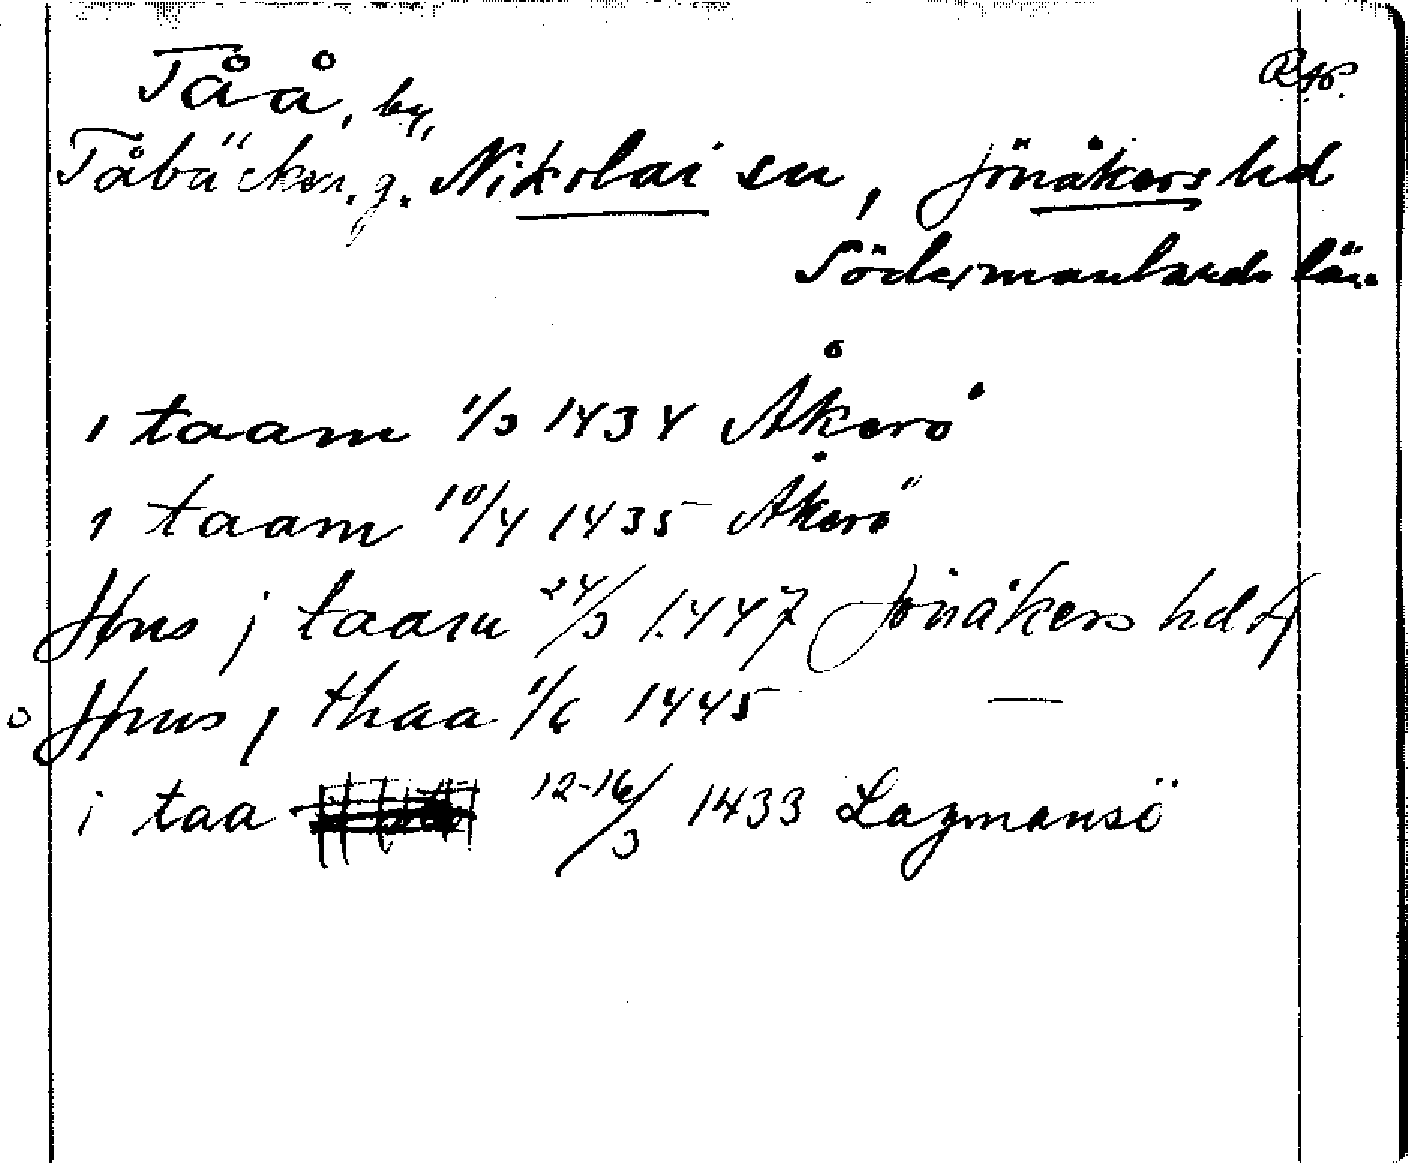 Tåå, by,
Tåbäcken, g. Nikolai sn, Jönåkers hd
Södermanlands län
i taam 1/3 1434 Åkerö
i taam 10/4 1435 Åkerö
Hus j taam 24/3 1447 Jönåkers hd
Hus j thaa 1/6 1445 —
i taa 12-16/3 1433 Lagmansö